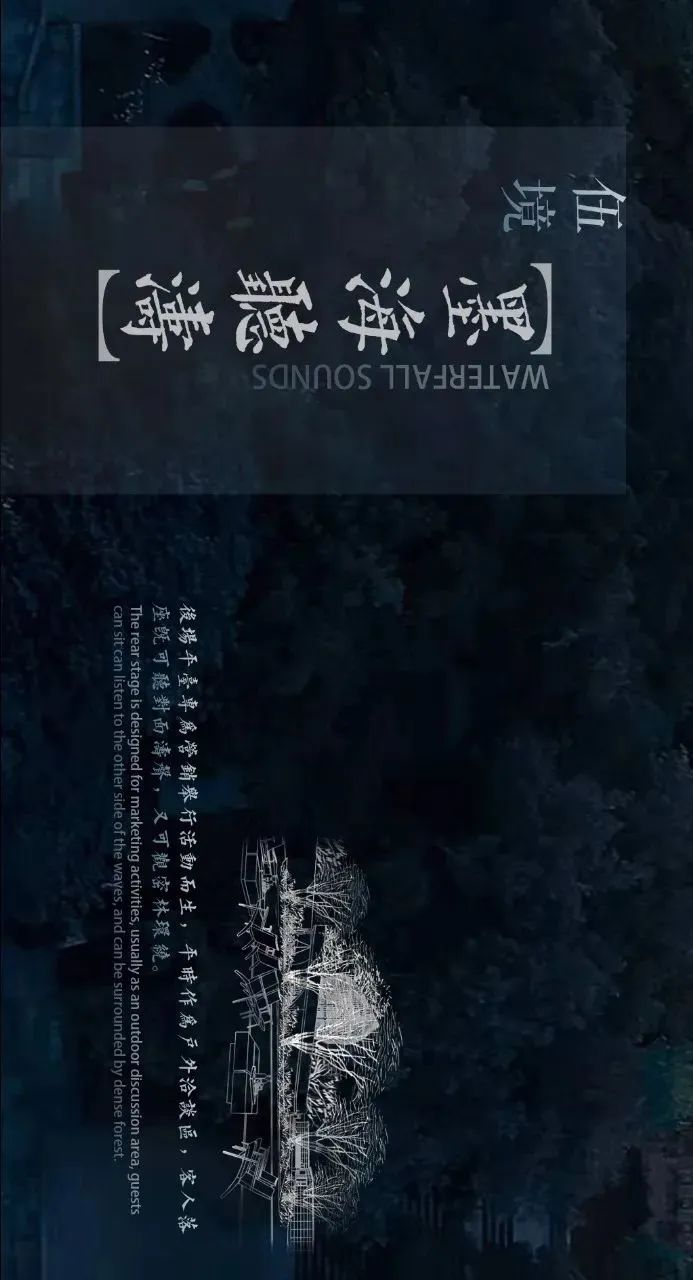 伍境
【墨海聽濤】
WATERFALL SOUNDS
後場平臺專為營銷舉行活動而生，平時作為戶外洽談區，客人落
座既可聽對面濤聲，又可觀密林環繞。
The rear stage is designed for marketing activities, usually as an outdoor discussion area, guests
can sit can listen to the other side of the waves, and can be surrounded by dense forest.